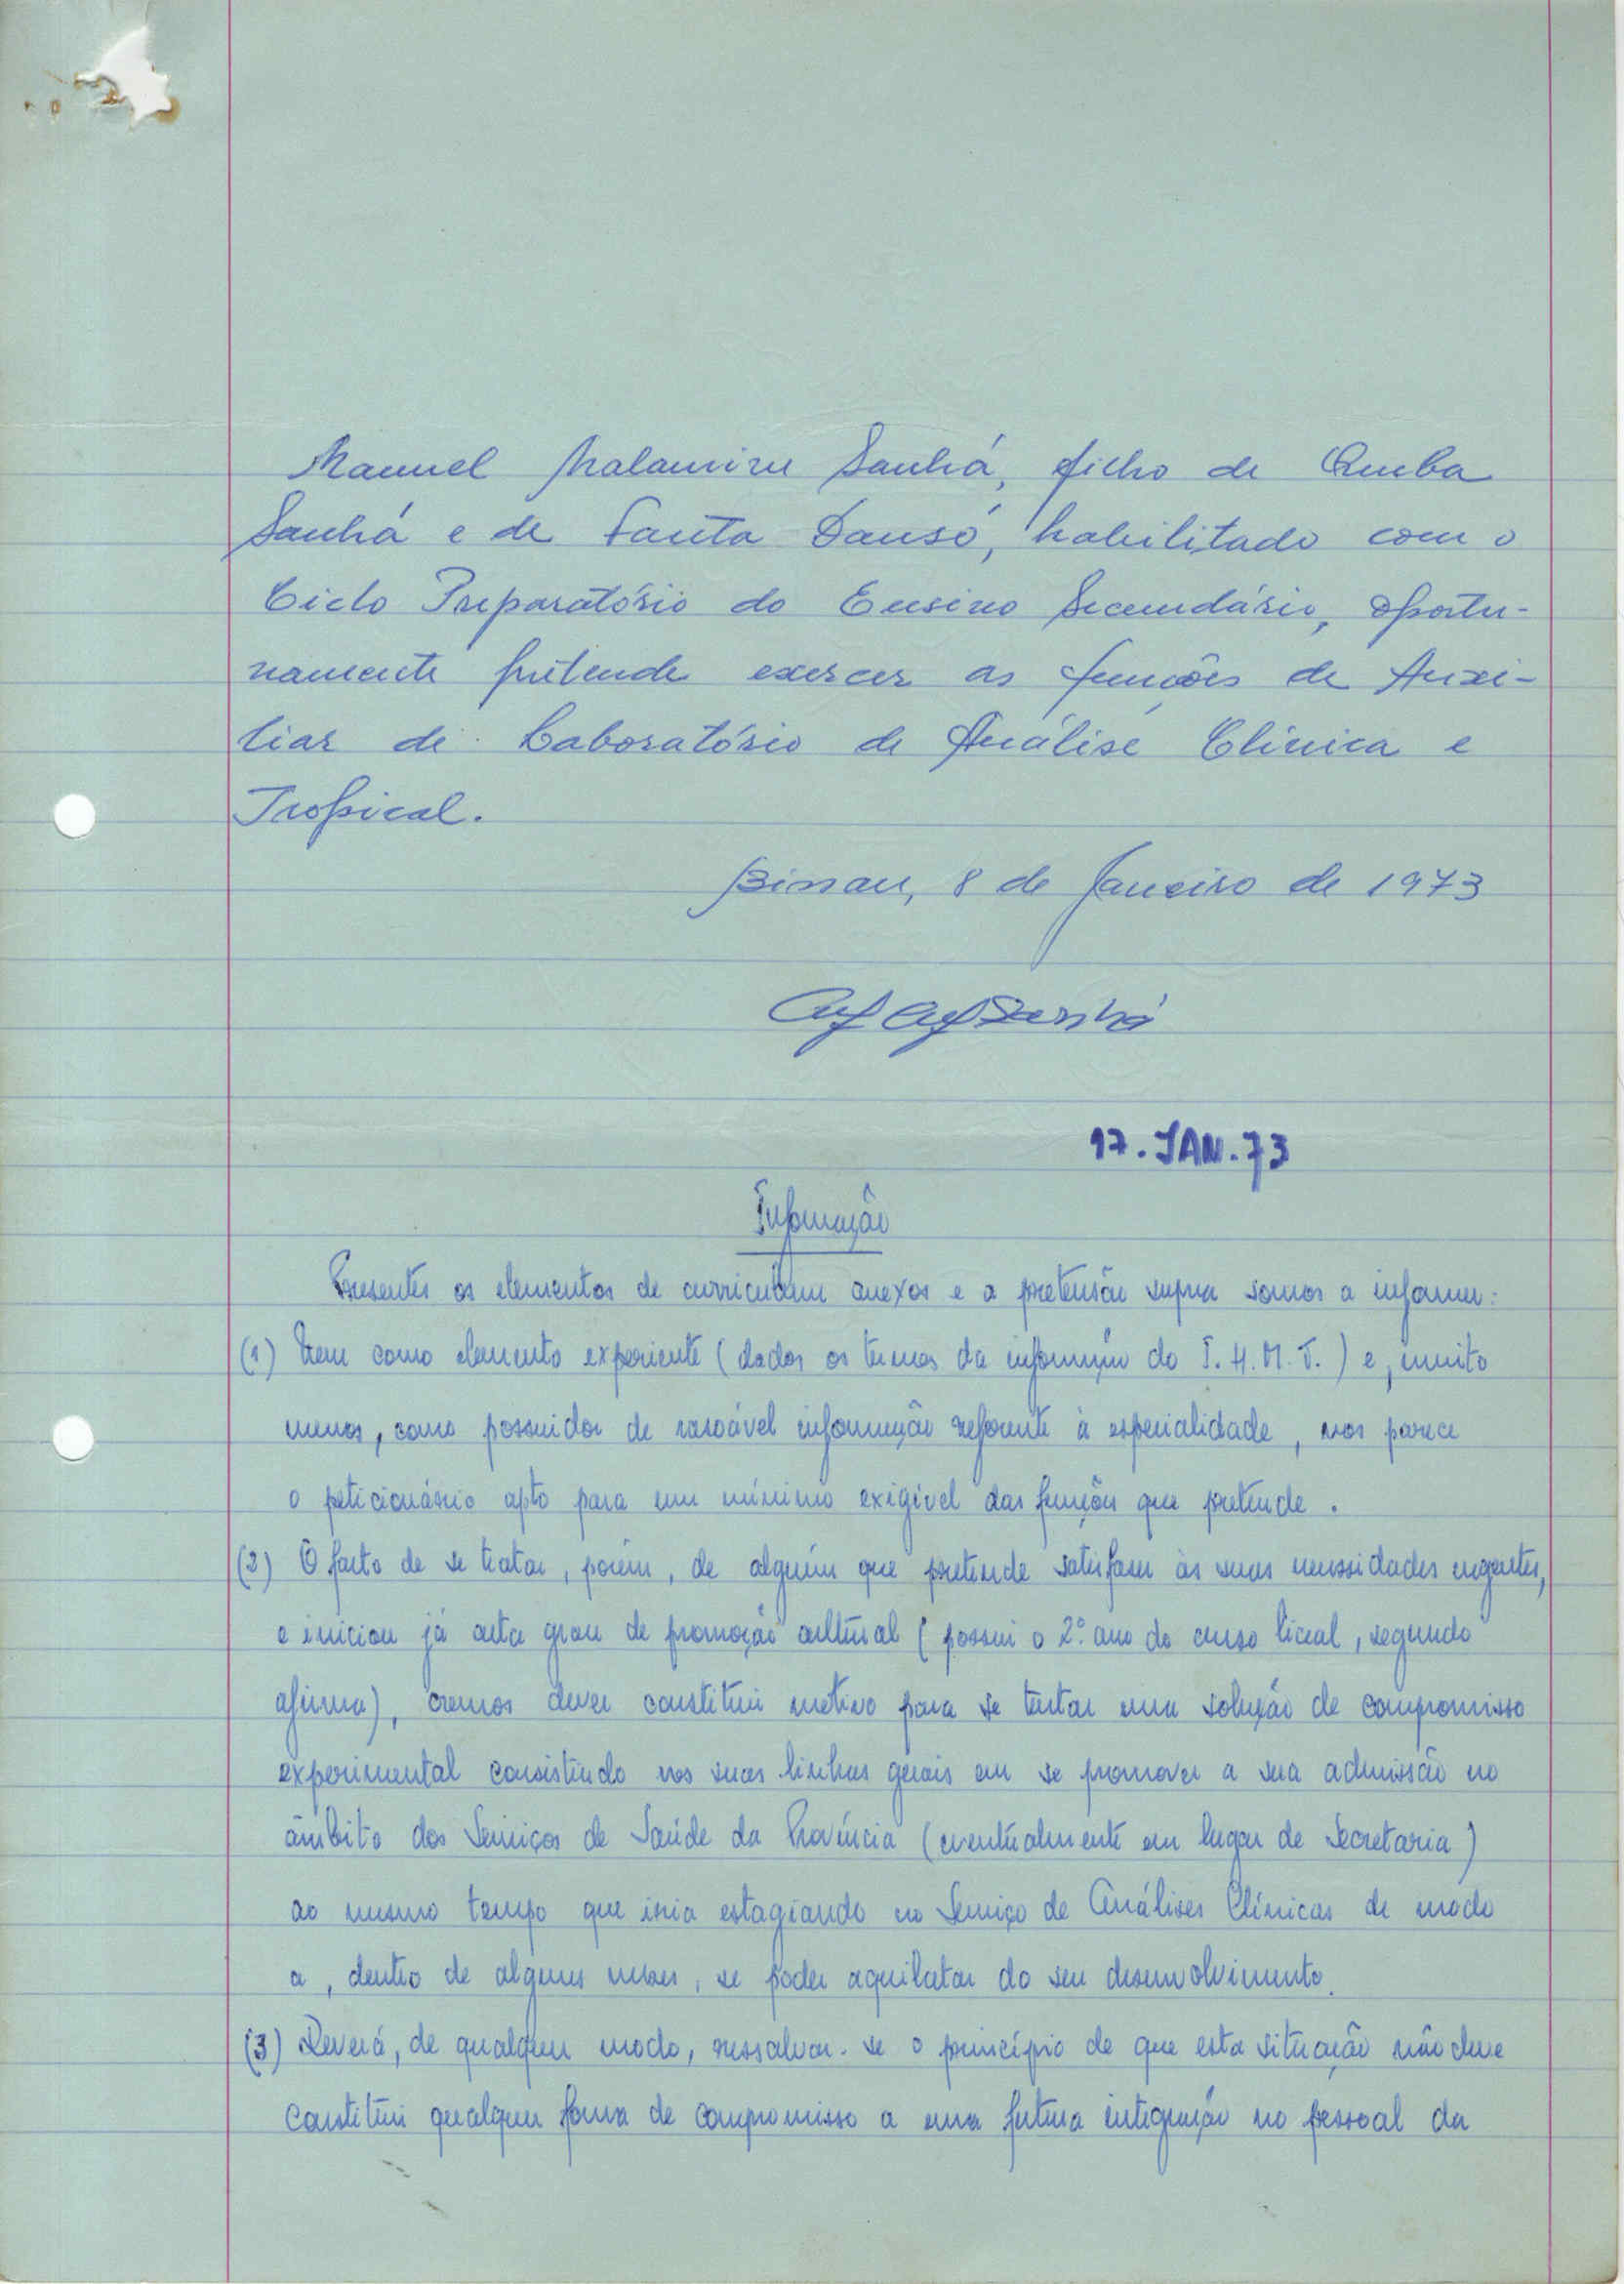 Manuel Malamine Sanhá, filho de Queba
Sanhá e de Fanta Dansó, habilitado com o
Ciclo Preparatório do Ensino Secundário, oportu-
namente pretende exercer as funções de Auxi-
liar de Laboratório de Análise Clínica e
Tropical.
Bissau, 8 de Janeiro de 1973
Sanhá
17.JAN.73
Informação
Presentes os elementos de curriculum anexos e a pretensão supra somos a informar:
(1) Nem como elemento experiente (dados os termos da informação do I.H.M.T.) e, muito
menos, como possuidor de razoável informação referente à especialidade, nos parece
o peticionário apto para um mínimo exigível das funções que pretende.
(2) O facto de se tratar, porém, de alguém que pretende satisfazer às suas necessidades urgentes,
e iniciou já certo grau de promoção cultural (possui o 2º ano do curso liceal, segundo
afirma), cremos dever constituir motivo para se tentar uma solução de compromisso
experimental consistindo nas suas linhas gerais em se promover a sua admissão no
âmbito dos Serviços de Saúde da Província (eventualmente em lugar de Secretaria)
ao mesmo tempo que iria estagiando no Serviço de Análises Clínicas de modo
a, dentro de alguns meses, se poder aquilatar do seu desenvolvimento.
(3) Deverá, de qualquer modo, ressalvar-se o princípio de que esta situação não deve
constituir qualquer forma de compromisso a uma futura integração no pessoal da